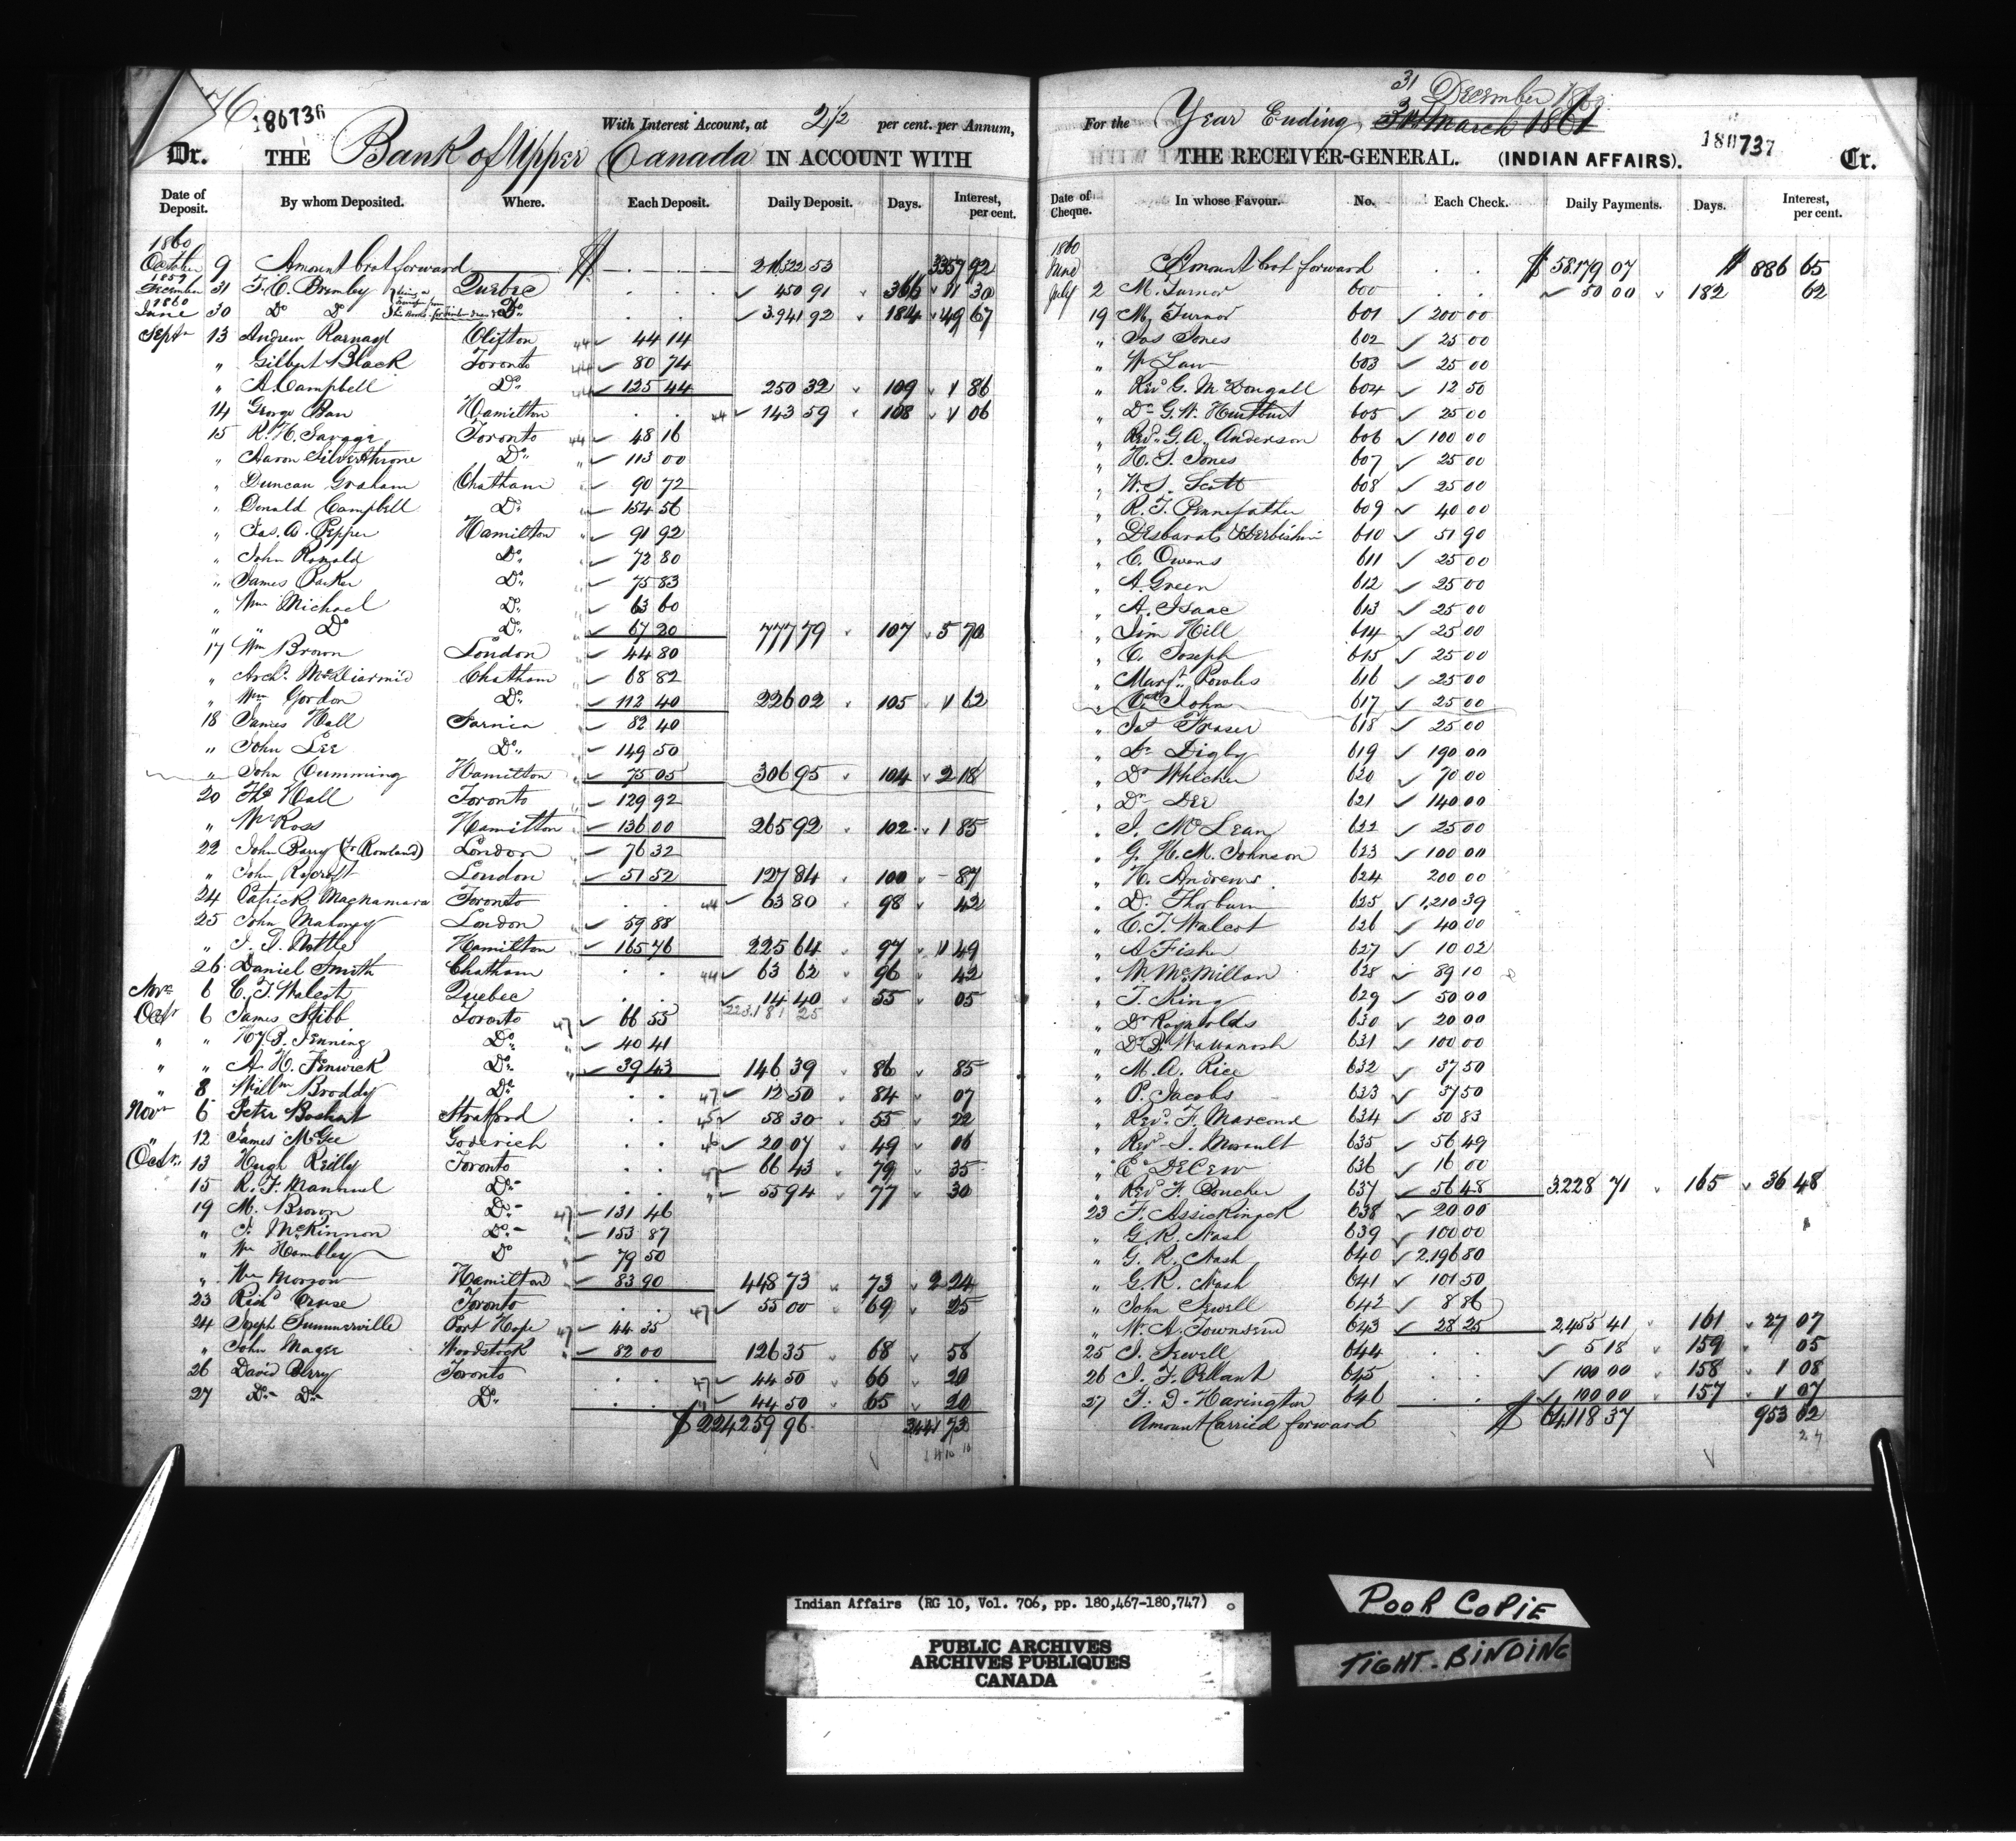 76
180736
With Interest Account, at 2 1/2 per cent. per Annum,
Dr. THE Bank of Upper Canada IN ACCOUNT WITH
Date of Deposit. By whom Deposited. Where. Each Deposit. Daily Deposit. Days. Interest, per cent.
1860
October 9 Amount brot forward $ 3357 92
1859
December 31 Quebec 450 91 366 11 30
1860
June 30 Do Do Do 3.941 92 184 49 67
Septr 13 Andrew Clifton 44 44 14
" Gilbert Black Toronto 44 80 74
" A. Campbell Do 44 125 44 250 32 109 1 86
14 George Hamilton 44 143 59 108 1 06
15 R. H. Savage Toronto 44 48 16
" Aaron Silverthrone Do " 113 00
" Duncan Graham Chatham " 90 72
" Donald Campbell Do " 154 56
" Jas. A. Pepper Hamilton " 91 92
" John Ronald Do " 72 80
" James Parker Do " 75 83
" Wm Michael Do " 63 60
" " Do Do " 67 20 777 79 107 5 70
17 Wm Brown London " 44 80
" Archd. McDiarmid Chatham " 68 82
" Wm Gordon Do " 112 40 226 02 105 1 62
18 James Hall Sarnia " 82 40
" John Lee Do " 149 50
" John Cumming Hamilton " 75 05 306 95 104 2 18
20 Thos Hall Toronto " 129 92
" Wm Ross Hamilton " 136 00 265 92 102 1 85
22 John Barry (Rowland) London " 76 32
" John Rycroft London " 51 52 127 84 100 - 87
24 Patrick Macnamara Toronto 44 63 80 98 42
25 John Mahoney London 59 88
" Hamilton 165 76 225 64 97 1 49
26 Daniel Smith Chatham 44 63 62 96 42
Novr 6 C. T. Walcot Quebec 14 40 55 05
Octr 6 James Stibb Toronto 47 66 55
" " Jenning Do " 40 41
" " A. H. Fenwick Do " 39 43 146 39 86 85
" 8 Willm Broddy Do 47 12 50 84 07
Novr 6 Peter Stratford 45 58 30 55 22
" 12 James McGee Goderich 46 20 07 49 06
Octr 13 Hugh Reilly Toronto 47 66 43 79 35
15 R. F. Do " 55 94 77 30
19 M. Brown Do 47 131 46
" McKinnon Do " 153 87
" Wm Hambley Do " 79 50
" Wm Morrow Hamilton " 83 90 448 73 73 2 24
23 Richd Cruse Toronto 47 55 00 69 25
24 Joseph Summerville Port Hope 47 44 35
" John Mager Woodstock " 82 00 126 35 68 58
26 David Berry Toronto 47 44 50 66 20
27 Do Do Do " 44 50 65 20
$ 224259 96 3441 73
31 December 1860
For the Year Ending 31st March 1861
180737
THE RECEIVER-GENERAL. (INDIAN AFFAIRS). Cr.
Date of Cheque. In whose Favour. No. Each Check. Daily Payments. Days. Interest, per cent.
1860
June Amount brot forward $ 58.179 07 $ 886 65
July 2 M. Turnor 600 50 00 182 62
19 M. Turnor 601 200 00
" Jas Jones 602 25 00
" Wm Law 603 25 00
" Revd G. McDougall 604 12 50
" Do G. W. Hurlburt 605 25 00
" Revd. G. A. Anderson 606 100 00
" H. S. Jones 607 25 00
" W. S. Scott 608 25 00
" R. T. Pennefather 609 40 00
" Desbarats & Derbishire 610 51 90
" C. Owens 611 25 00
" A. Green 612 25 00
" A. Isaac 613 25 00
" Jim Hill 614 25 00
" C. Joseph 615 25 00
" Margt. Powles 616 25 00
" John 617 25 00
" Jas Fraser 618 25 00
" Dr Digby 619 190 00
" Dr 620 70 00
" Dr Dee 621 140 00
" J. McLean 622 25 00
" G. H. M. Johnson 623 100 00
" H. Andrews 624 200 00
" D. Thorburn 625 1,210 39
" C. T. Walcot 626 40 00
" A Fisher 627 10 02
" W McMillan 628 89 10
" T. King 629 50 00
" Dr Reynolds 630 20 00
" Wawanosh 631 100 00
" M. A. Rice 632 37 50
" P. Jacobs 633 37 50
" Revd. F. Marcoux 634 50 83
" Revd J. 635 56 49
" E DeCew 636 16 00
" Revd F. Boucher 637 56 48 3.228 71 165 36 48
23 F. Assickinack 638 20 00
" G. R. Nash 639 100 00
" G. R. Nash 640 2.196 80
" G. R. Nash 641 101 50
" John Sewell 642 8 86
" W. A. Townsend 643 28 25 2,455 41 161 27 07
25 J. Sewell 644 5 18 159 05
26 J. F. Pellant 645 100 00 158 1 08
27 T. D. Harington 646 100 00 157 1 07
Amount Carried forward $ 64,118 37 953 02
Indian Affairs (RG 10, Vol. 706, pp. 180,467-180,747)
PUBLIC ARCHIVES
ARCHIVES PUBLIQUES
CANADA
POOR COPIE
TIGHT-BINDING